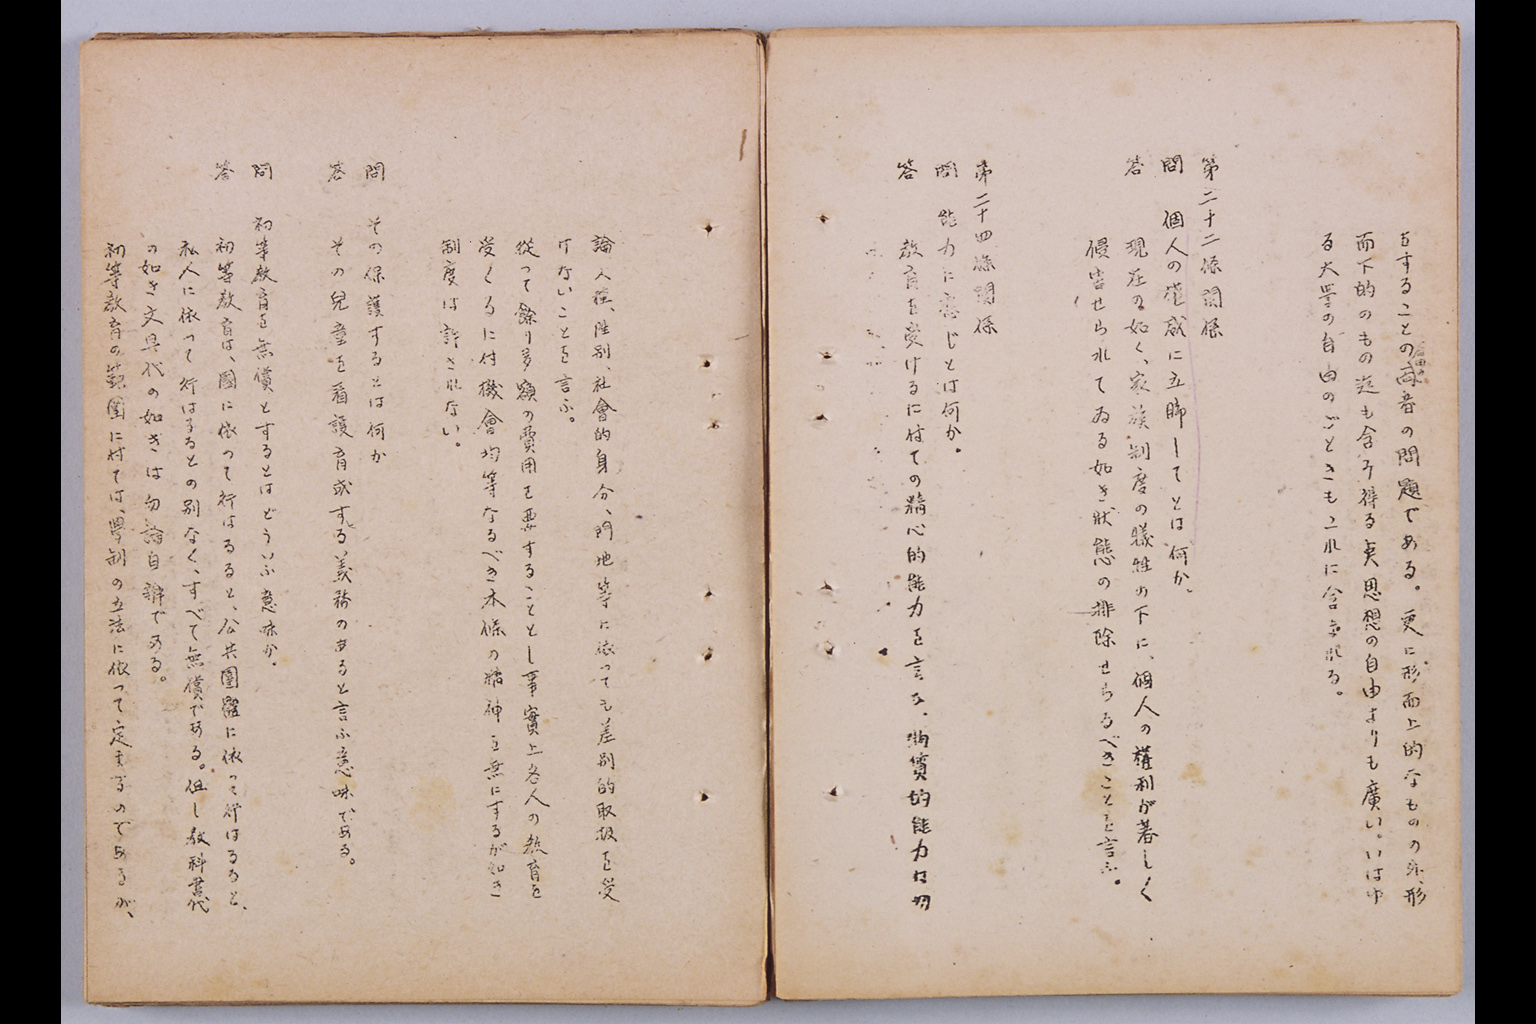 をすることの
の問題である。更に形而上的なものの外形
而下的のもの迄も含み得る奌思想の自由よりも廣い。いはゆ
る大學の自由のごときもこれに含まれる。
第二十二條関係
問 個人の権威に立脚してとは何か。
答 現在の如く、家族制度の犠牲の下に、個人の権利が著しく
侵害せられてゐる如き状態の排除せらるべきことを言ふ。
第二十四條関係
問 能力に應じとは何か。
答 教育を受けるに付ての精心的能力を言ひ、物質的能力は勿
論人種、性別、社會的身分、門地等に依っても差別的取扱を受
けないことを言ふ。
従って餘り多額の費用を要することとし事實上各人の教育を
受くるに付機會均等なるべき本條の精神を無にするが如き
制度は許されない。
問 その保護するとは何か
答 その兒童を看護育成する義務のあると言ふ意味である。
問 初等教育を無償とするとはどういふ意味か。
答 初等教育は、國に依って行はるると、公共團體に依って行はるると、
私人に依って行はるるとの別なく、すべて無償である。但し教科書代
の如き文具代の如きは勿論自辨である。
初等教育の範圍に付ては、學制の立法に依って定まるのであるが、